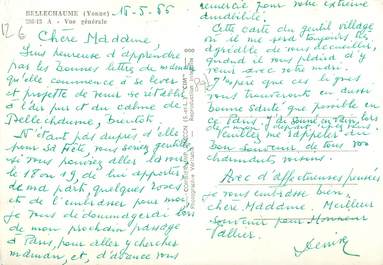 BELLECHAUME (Yonne)
Vue générale
18-5-85
Chère Madame,
Suis heureuse d'apprendre
par les bonnes lettres de maman
qu'elle commence à se lever
et projette de venir se rétablir
à l'air pur et au calme de
Bellechaume, bientôt.
N'étant pas auprès d'elle
pour sa Fête, vous seriez gentille
si vous pouviez aller la voir
le 18 ou 19, de lui apporter
de ma part, quelques roses
et de l'embrasser pour moi,
je vous dédommagerai lors
de mon prochain passage
à Paris, pour aller y chercher
maman, et, d'avance vous
remercie pour votre extrême
Cette carte du gentil village
où il me sera toujours très
agréable de vous accueillir,
quand il vous plaira d'y
venir avec votre mari.
J'espère que ces lignes
vous trouveront en aussi
bonne santé que possible en
ce Paris.
Bon souvenir de tous vos
charmants voisins.
Avec d'affectueuses pensées
je vous embrasse bien,
chère Madame. Meilleur
souvenir pour Monsieur
Tallier.
Denise